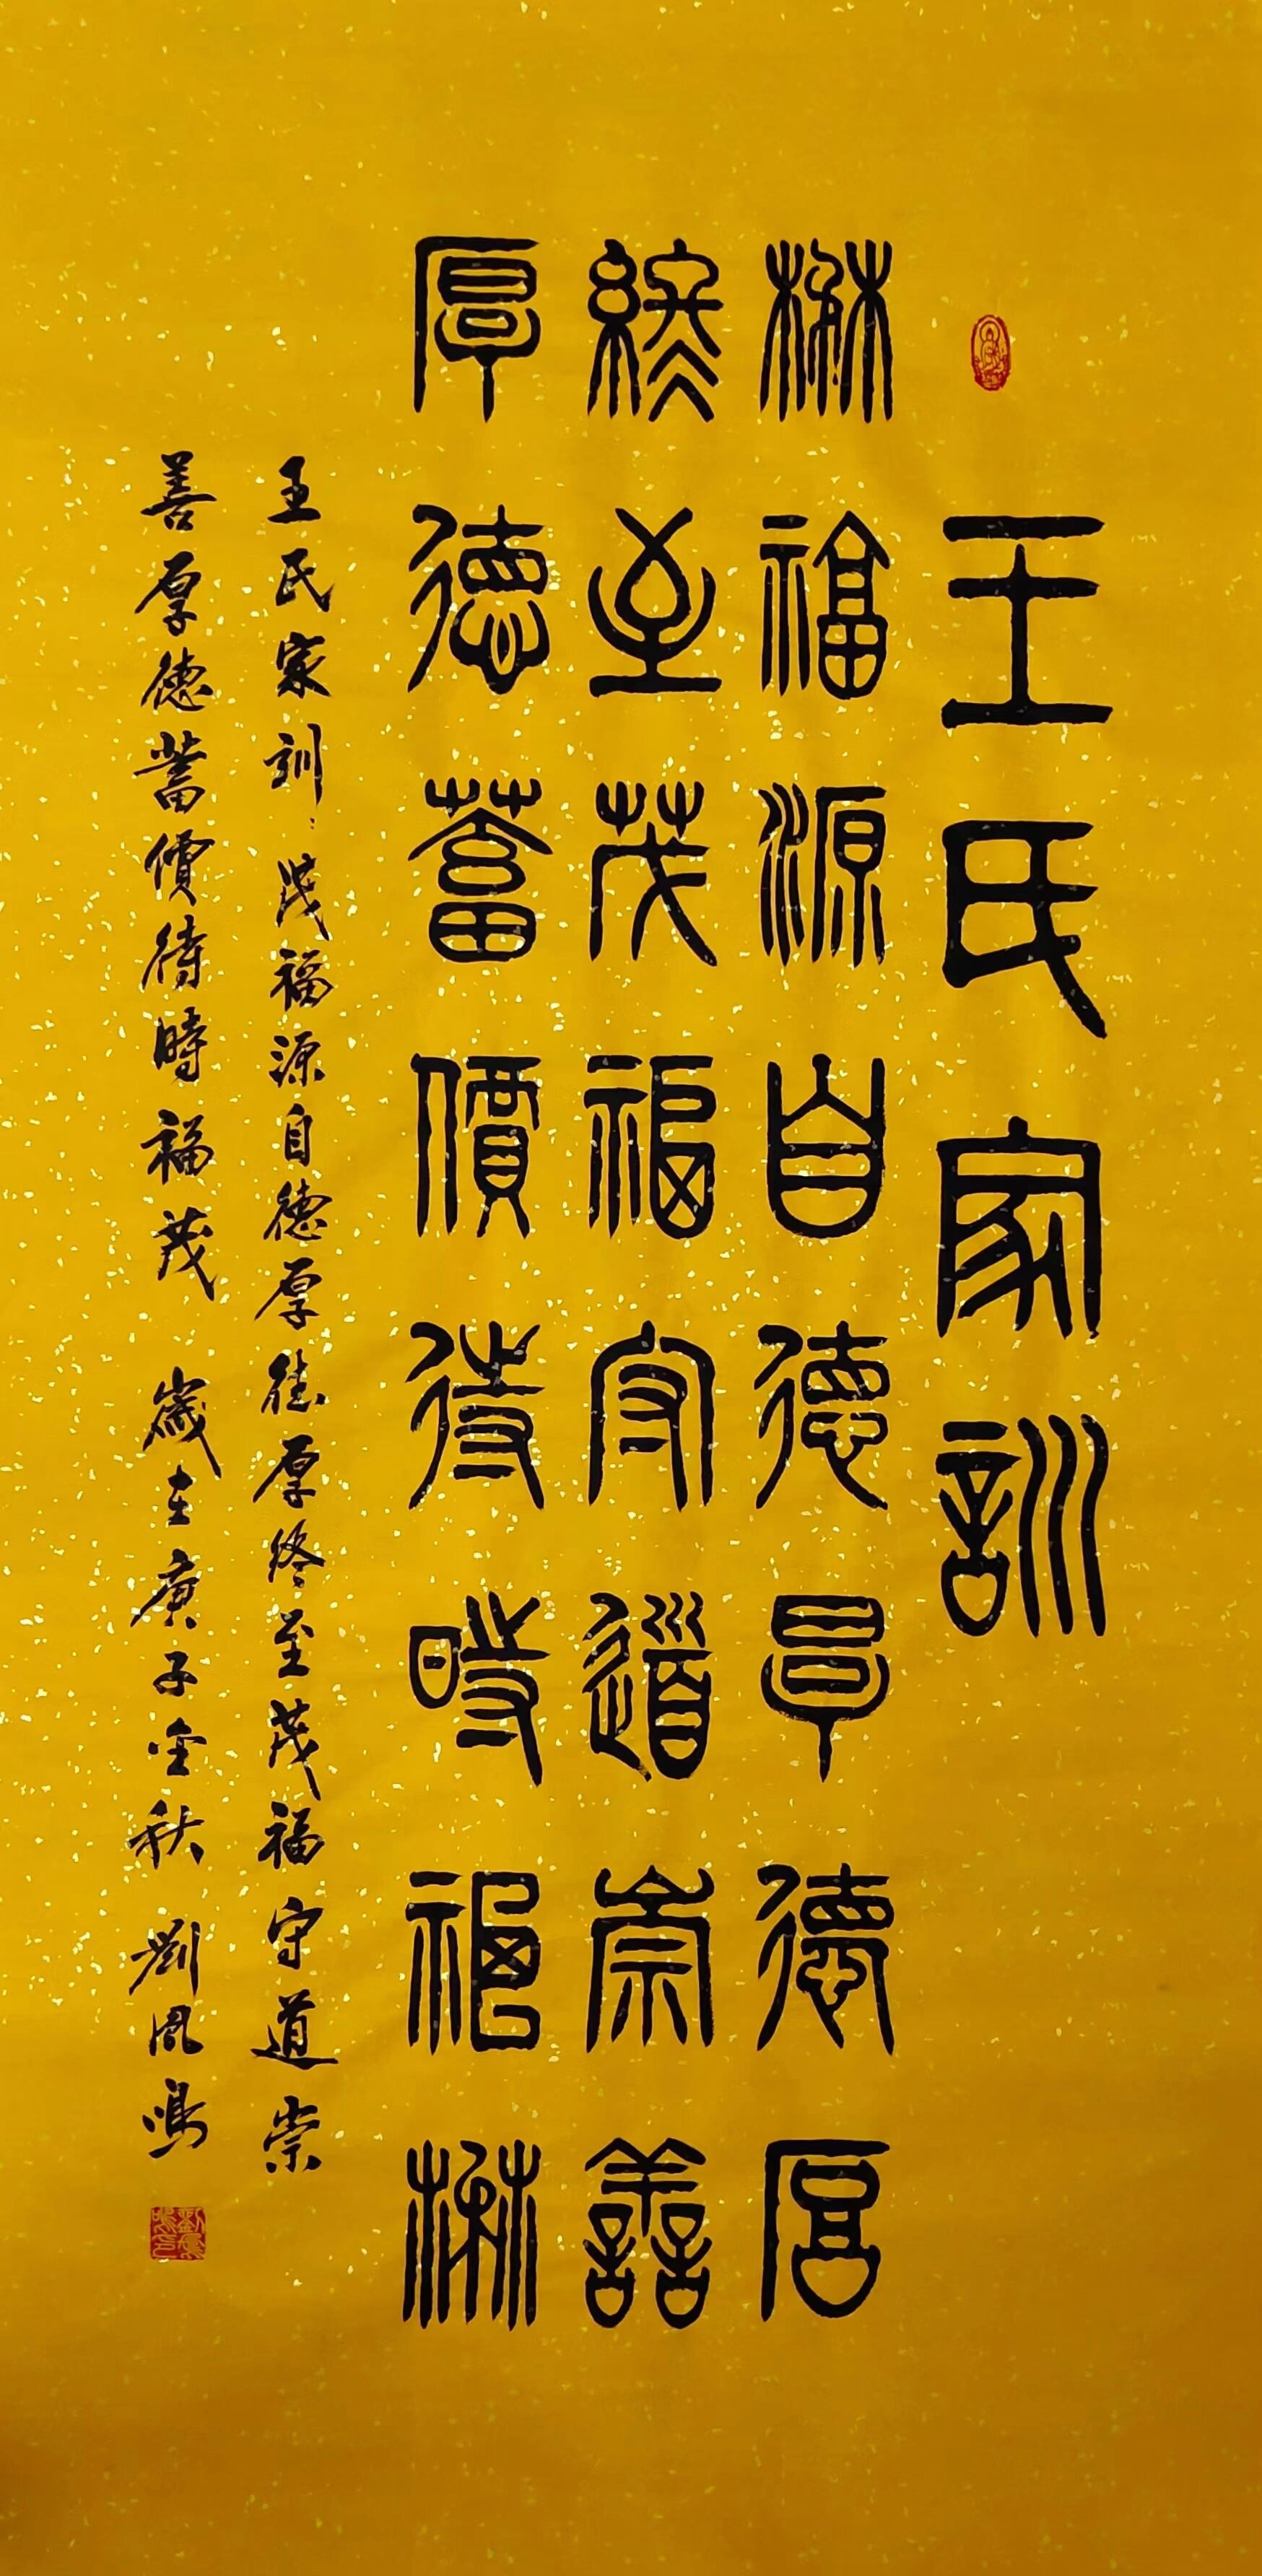 王氏家訓
楙福源自德厚德厚
終至茂福守道崇善
厚德蓄價待時福楙
王氏家訓：茂福源自德厚德厚終至茂福守道崇
善厚德蓄價待時福茂 歲在庚子金秋 劉鳳鳴